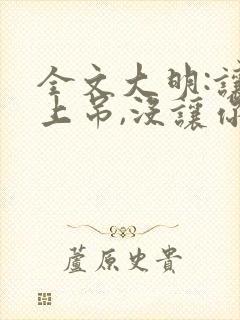 全文大明:讓
上吊,沒讓你
蘆原史貴